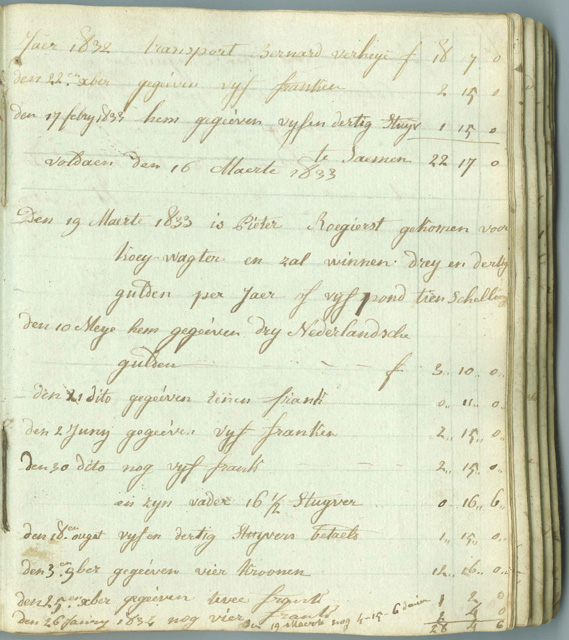 Jaer 1832 transport Bernard verheije f 18 7 0
den 22en xber gegeven vyf franken 2 15 0
den 17 febry 1833 hem gegeeven vyfendertig Stuyv 1 15 0
te Saemen 22 17 0
voldaen den 16 Maerte 1833
Den 19 Maerte 1833 is Pieter Roegierst gekomen voor
koey wagter en zal winnen drey en dertig
gulden per Jaer of vyf pond tien Schelling
den 10 Meye hem gegeeven dry Nederlandsche
gulden - - - f 3,, 10,, 0,,
den 21 dito gegeeven eenen frank 0,, 11,, 0
den 2 Juny gegeeven vyf franken 2,, 15,, 0,,
den 30 dito nog vyf frank 2,, 15,, 0
en zyn vader 16 1/2 Stuyver 0,, 16,, 6
den 18en ougst vyfendertig Stuyvers betaelt 1,, 15,, 0,,
den 3en 9ber gegeeven vier kroonen 12,, 0,,
den xber gegeeven twee frank 1 2 0
den 26 Janury 1834 nog vier frank 2 4 0
den 19 Maerte nog 4-15 6
28 4 6